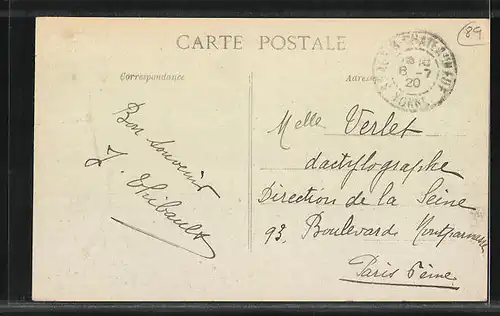 89
CARTE POSTALE
Correspondance
Adresse
8-7
20
YONNE
Bon souvenir
J. Thibault
Melle Verlet
dactylographe
Direction de la Seine
93, Boulevards Montparnasse
Paris 6ème